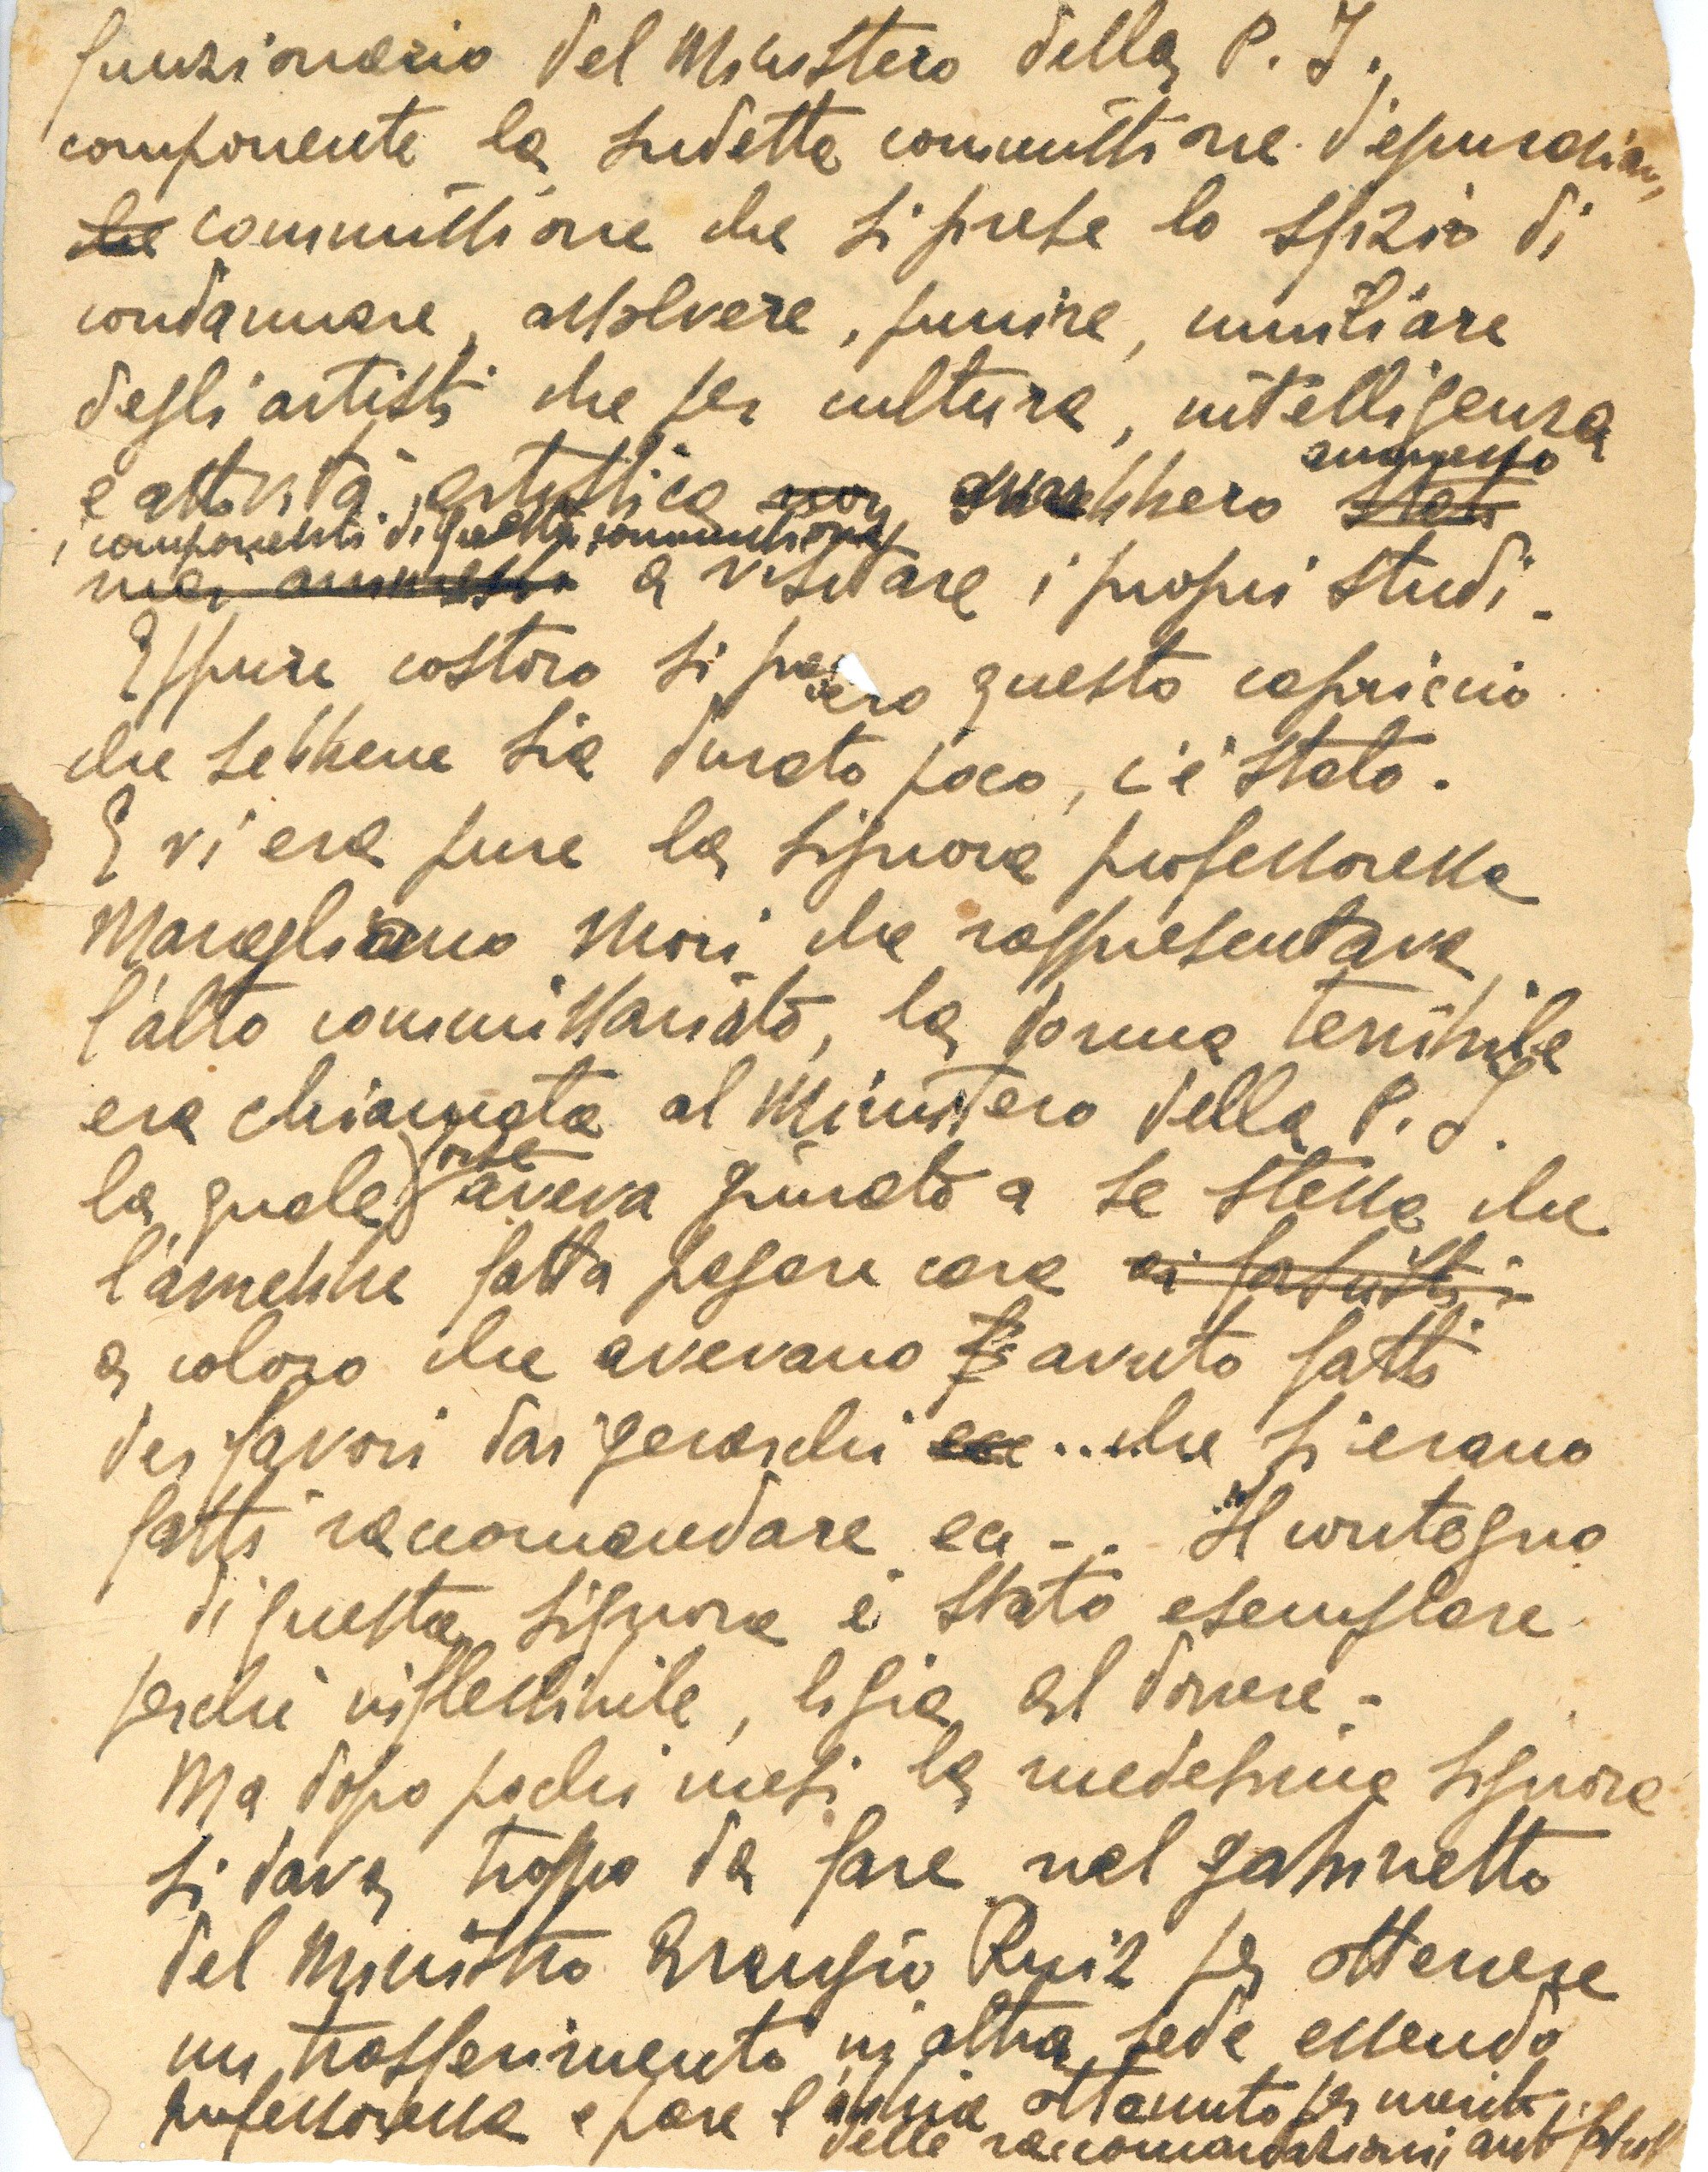 funzionario del Ministero della P. I.,
componente la sudetta commissione d'epurazion,
che commissione che si prese lo sfizio di
condannare, assolvere, punire, umiliare
degli artisti che per cultura, intelligenza
e attività artistica non avrebbero stati ammesso
i componenti di questa commissione
mai ammessi a visitare i propri studi -
Eppure costoro si presero questo capriccio
che sebbene sia durato poco, c'è stato.
E vi era pure la signora professoressa
Maragliano Mori che rappresentava
l'alto commissariato, la donna terribile
era chiamata al Ministero della P. I.
la quale forse aveva giurato a se stessa che
l'avrebbe fatta pagare cara ai fascisti
a coloro che avevano avuto fatti
dei favori dai gerarchi ecc .... che si erano
fatti raccomandare ecc - .. Il contegno
di questa signora è stato esemplare
perché inflessibile, ligia al dovere -
Ma dopo pochi mesi la medesima signora
si dava troppo da fare nel gabinetto
del Ministro Arangio Ruiz per ottenere
un trasferimento in altra sede essendo
professoressa e pare l'abbia ottenuto per merito
delle raccomandazioni